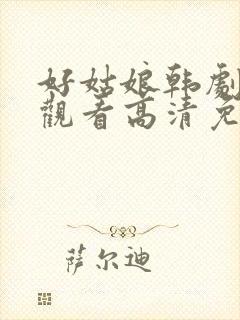 好姑娘韩劇
觀看高清免
萨尔迪